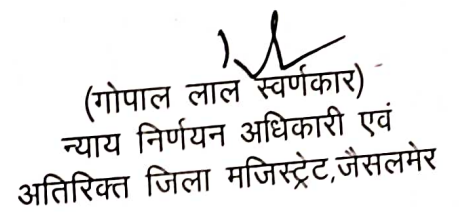 (गोपाल लाल स्वर्णकार)
न्याय निर्णयन अधिकारी एवं
अतिरिक्त जिला मजिस्ट्रेट,जैसलमेर